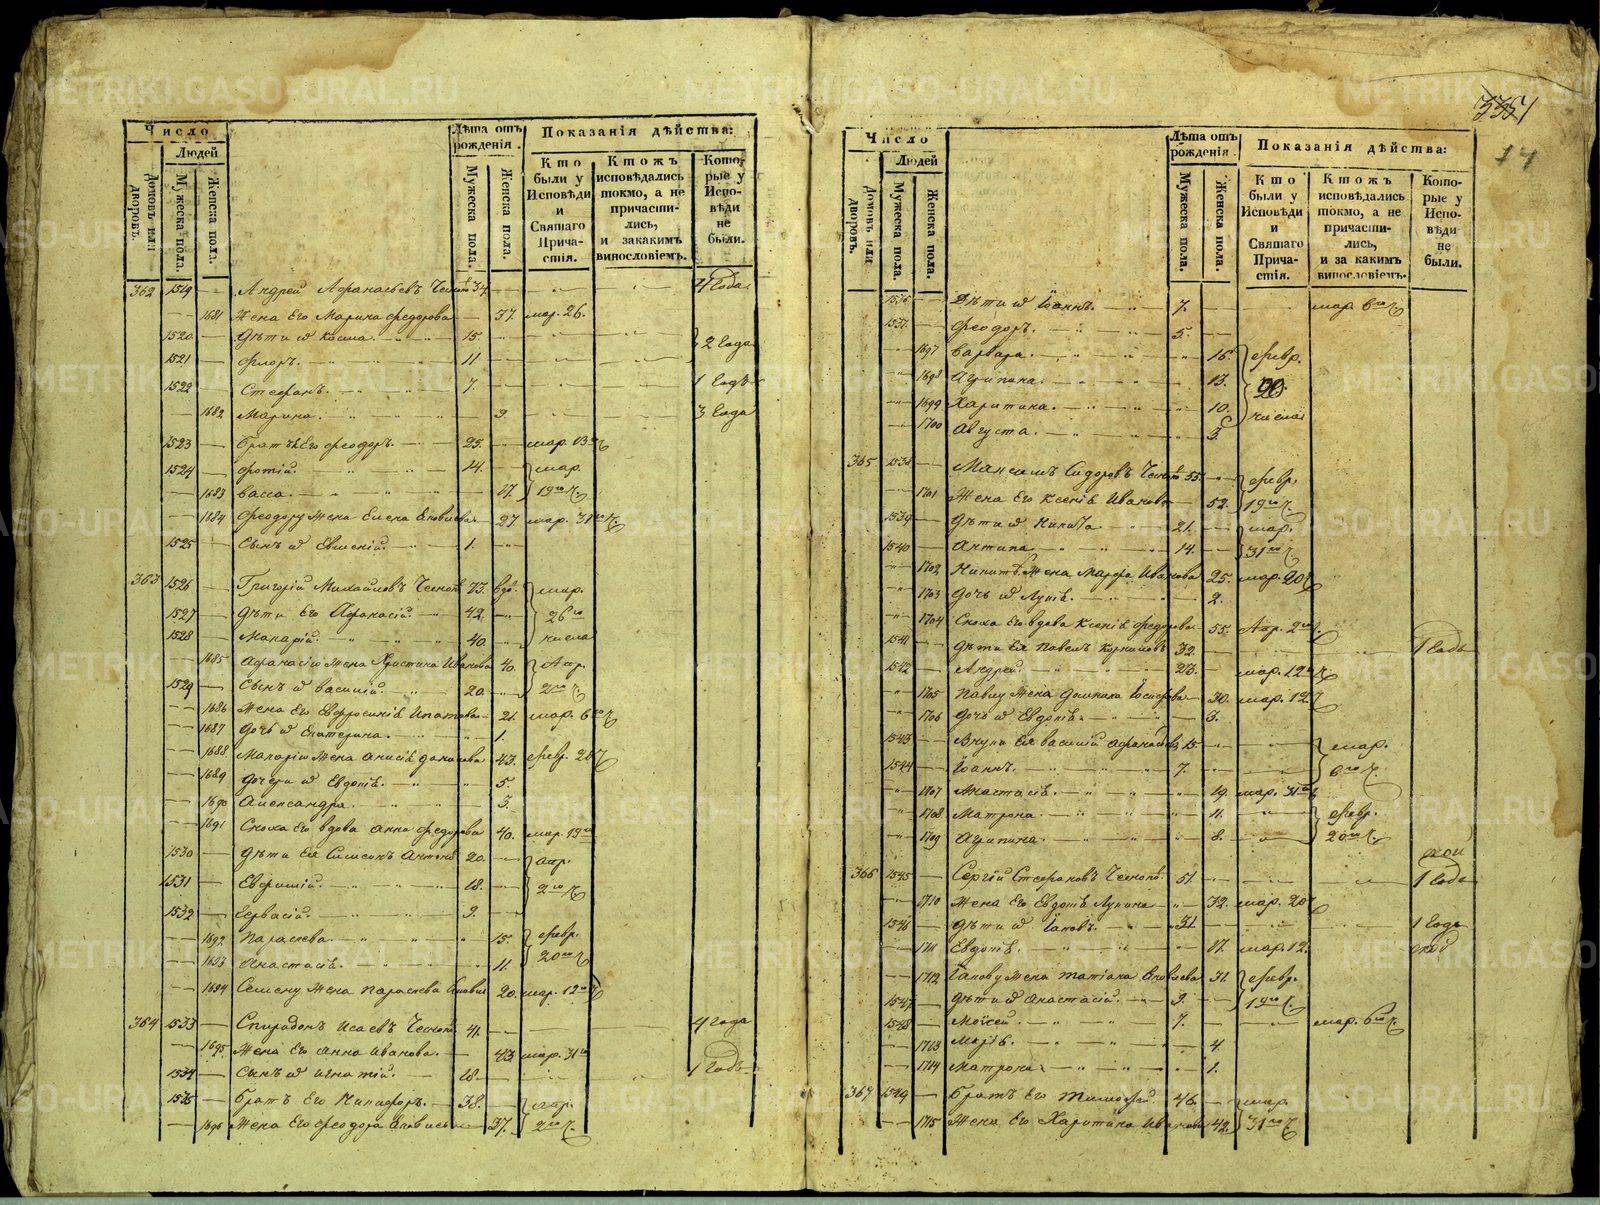 METRIKI.GASO-URAL.RU
3351
14
Число
Лѣта отъ рожденія.
Показанія дѣйства:
Домовъ или дворовъ.
Людей
Мужеска пола.
Женска пола.
Мужеска пола.
Женска пола.
Кто были у Исповѣди и Святаго Причастія.
Ктожъ исповѣдались токмо, а не причастились, и закакимъ винословіемъ.
Которые у Исповѣди не были.
362 1519 Андрей Афанасьевъ 34. 4 года
1681 Жена Его Марина Федорова 37. мар. 26.
1520 Дѣти их Косма 15. 2 года
1521 Флоръ. 11
1522 Стефанъ. 7. 1 годъ
1682 Марина. 9 3 года
1523 Братъ Его Феодоръ. 25. мар. 13
1524 Фотій. 14. мар.
1683 Васса. 17. 19го ч.
1684 Феодору Жена Елена 27 мар. 31го ч.
1525 Сынъ их Евгеній. 1.
363 1526 Григорій Михайловъ 73. вдо. мар.
1527 Дѣти Его Афанасій 42. 26го
1528 Макарій. 40. числа
1685 Афанасію Жена Христина Иванова 40. Апр.
1529 Сынъ их Василій. 20. 2го ч.
1686 Жена Его Евфросинія Ипатова 21. мар. 6го ч.
1687 Дочь их Екатерина. 1.
1688 Макарію Жена Анисія Данилова 43. февр. 20 ч.
1689 Дочери их Евдокія. 5.
1690 Александра. 3.
1691 Сноха Его вдова Анна Федорова 40. мар. 19го
1530 Дѣти Ея Симеонъ 20. апр.
1531 Евфимій. 18. 2го ч.
1532 Гервасій. 9.
1692 Параскева. 15. февр.
1693 Анастасія. 11. 20го ч.
1694 Семену Жена Параскева 20. мар. 12го ч.
364 1533 Спиридонъ Исаевъ 41. 4 года
1695 Жена Его Анна Иванова. 43. мар. 31го
1534 Сынъ их Игнатій. 18. 1 годъ
1535 Братъ Его Никифоръ. 38. апр.
1696 Жена Его Феодора 37. 2го ч.
Число
Лѣта отъ рожденія.
Показанія дѣйства:
Домовъ или дворовъ.
Людей
Мужеска пола.
Женска пола.
Мужеска пола.
Женска пола.
Кто были у Исповѣди и Святаго Причастія.
Ктожъ исповѣдались токмо, а не причастились, и за какимъ винословіемъ.
Которые у Исповѣди не были.
1536 Дѣти их Іоаннъ. 7. мар. 6го ч.
1537 Феодоръ. 5.
1697 Варвара. 16. февр.
1698 Агрипина. 13. 20.
1699 Харитина. 10. числа
1700 Августа. 3.
365 1538 Максимъ Сидоровъ 55. февр.
1701 Жена Его Ксенія Иванова 52. 19го ч.
1539 Дѣти их Никита 21. мар.
1540 Антипа 14. 31го ч.
1702 Никитѣ Жена Марфа Иванова 25. мар. 20 ч.
1703 Дочь их 2.
1704 Сноха Его вдова Ксенія Федорова 55. Апр. 2го ч.
1541 Дѣти Ея Павелъ Корниловъ 32. 1 годъ
1542 Андрей. 23. мар. 12го ч.
1705 Павлу Жена 30. мар. 12 ч.
1706 Дочь их Евдокія. 3.
1543 Внуки Ея Василій Афанасьевъ 15. мар.
1544 Іоаннъ. 7. 6го ч.
1707 Анастасія. 19. мар. 31го
1708 Матрона. 11. февр.
1709 Агрипина. 8. 20го ч.
366 1545 Сергій Стефановъ 51. 1 годъ
1710 Жена Его Евдокія Лукина 32. мар. 20 ч.
1546 Дѣти их Іаковъ. 31. 1 годъ
1711 Евдокія. 17. мар. 12.
1712 Іакову Жена Татіана 31. февр.
1547 Дѣти их Анастасій. 9. 19го ч.
1548 Моѵсей. 7. мар. 6го ч.
1713 Марія. 4.
1714 Матрона. 1.
367 1549 Братъ Его Тимофей. 46. мар.
1715 Жена Его Харитина Иванова 42. 31го ч.